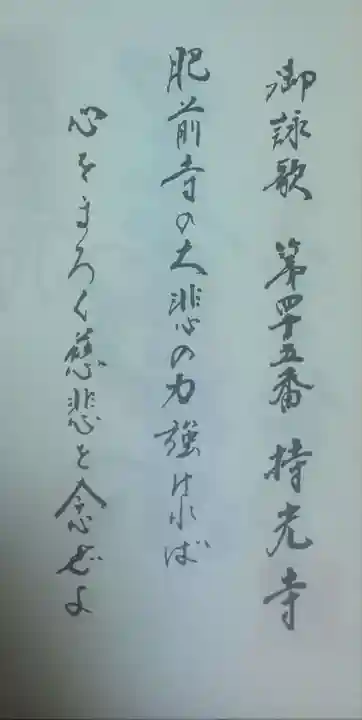 御詠歌 第四十五番 持光寺
肥前寺の大悲の力強ければ
心をまろく慈悲を念ぜよ